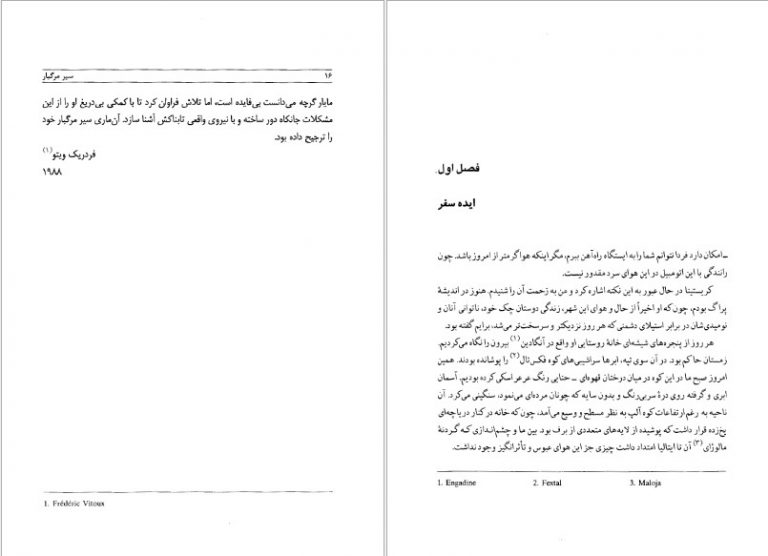 ۱۶ سیر مرگبار
مایار گرچه می‌دانست بی‌فایده است، اما تلاش فراوان کرد تا با کمکی بی‌دریغ او را از این
مشکلات جانکاه دور ساخته و با نیروی واقعی تابناکش آشنا سازد. آن‌ماری سیر مرگبار خود
را ترجیح داده بود.
فردریک ویتو(۱)
۱۹۸۸
1. Frédéric Vitoux
فصل اول.
ایده سفر
ـ امکان دارد فردا نتوانم شما را به ایستگاه راه‌آهن ببرم، مگر اینکه هوا گرمتر از امروز باشد. چون
رانندگی با این اتومبیل در این هوای سرد مقدور نیست.
کریستینا در حال عبور به این نکته اشاره کرد و من به زحمت آن را شنیدم. هنوز در اندیشهٔ
پراگ بودم، چون‌که او اخیراً از حال و هوای این شهر، زندگی دوستان چک خود، ناتوانی آنان و
نومیدی‌شان در برابر استیلای دشمنی که هر روز نزدیکتر و سرسخت‌تر می‌شد، برایم گفته بود.
هر روز از پنجره‌های شیشه‌ای خانهٔ روستایی او واقع در آنگادین(۱) بیرون را نگاه می‌کردیم.
زمستان حاکم بود. در آن سوی تپه، ابرها سراشیبی‌های کوه فکس‌تال(۲) را پوشانده بودند. همین
امروز صبح ما در این کوه در میان درختان قهوه‌ای ـ حنایی رنگ عرعر اسکی کرده بودیم. آسمان
ابری و گرفته روی درهٔ سربی‌رنگ و بدون سایه که چونان مرده‌ای می‌نمود، سنگینی می‌کرد. آن
ناحیه به رغم ارتفاعات کوه آلپ به نظر مسطح و وسیع می‌آمد، چون‌که خانه در کنار دریاچه‌ای
یخ‌زده قرار داشت که پوشیده از لایه‌های متعددی از برف بود. بین ما و چشم‌اندازی که گردنهٔ
مالوژای(۳) آن تا ایتالیا امتداد داشت چیزی جز این هوای عبوس و تأثرانگیز وجود نداشت.
1. Engadine 2. Fextal 3. Maloja